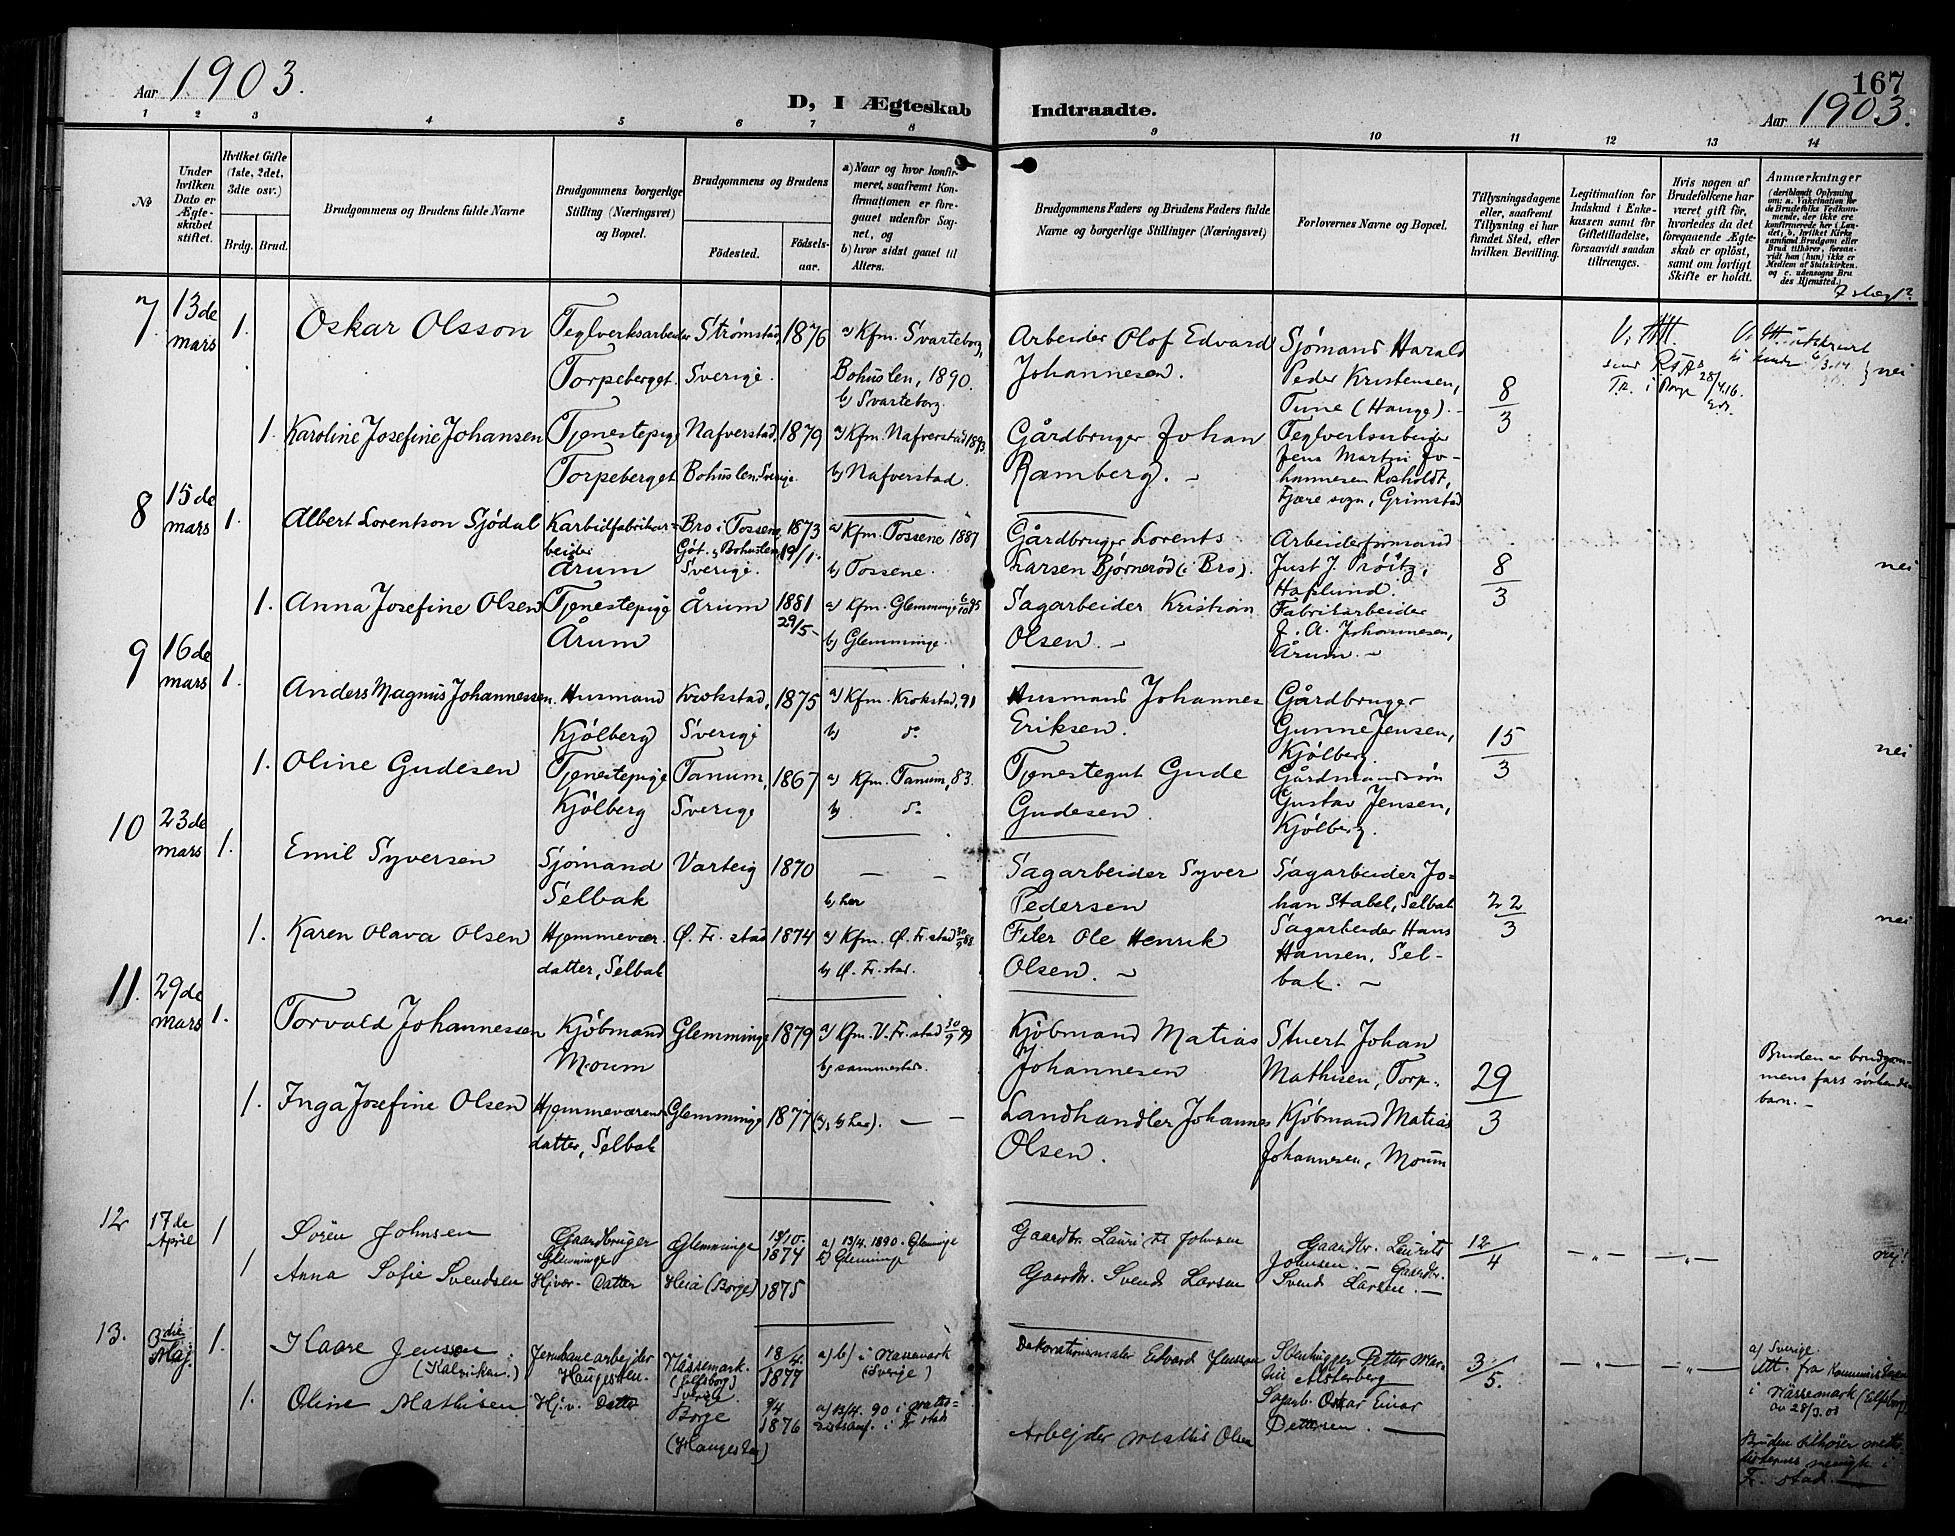 Aar 1903.
D, I Ægteskab Indtraadte.
167
Aar 1903.
1 2 3 4 5 6 7 8 9 10 11 12 13 14
No
Under hvilken Dato er Ægteskabet stiftet.
Hvilket Gifte (1ste, 2det, 3die osv.)
Brdg. Brud.
Brudgommens og Brudens fulde Navne
Brudgommens borgerlige Stilling (Næringsvei) og Bopæl.
Brudgommens og Brudens
Fødested. Fødselsaar.
a) Naar og hvor konfirmeret, saafremt Konfirmationen er foregaaet udenfor Sognet, og
b) hvor sidst gaaet til Alters.
Brudgommens Faders og Brudens Faders fulde Navne og borgerlige Stillinger (Næringsvei)
Forlovernes Navne og Bopæl.
Tillysningsdagene eller, saafremt Tillysning ei har fundet Sted, efter hvilken Bevilling.
Legitimation for Indskud i Enkekassen samt for Giftetilladelse, forsaavidt saadan tiltrænges.
Hvis nogen af Brudefolkene har været gift før, hvorledes da det foregaaende Ægteskab er opløst, samt om lovligt Skifte er holdt.
Anmærkninger
(deriblandt Oplysning om: a. Vaccination for de Brudefolks Vedkommende, der ikke ere konfirmerede her i Landet; b. hvilket Kirkesamfund Brudgom eller Brud tilhører, forsaavidt han (hun) ikke er Medlem af Statskirken, og c. udensogns Brudes Hjemsted.)
7 13de mars 1. Oskar Olsson Teglverksarbeider Strømstad, 1876 a) Kfm. Svarteborg,
Torpeberget. Sverige. Bohuslen, 1890.
b) Svarteborg
Arbeider Olof Edvard Johannesen.
Sjømand Harald Peder Kristensen, Tune (Hauge).
8/3
nei
1. Karoline Josefine Johansen Tjenestepige Nafverstad, 1879 a) Kfm. Nafverstad 1893.
Torpeberget Bohuslen, Sverige. b) Nafverstad.
Gårdbruger Johan Ramberg. -
Teglverksarbeider Jens Martin Johannesen Rosholdt, Fjære sogn, Grimstad
8 15de mars 1. Albert Lorentson Sjödal Karbidfabrikarbeider Bro i Tossene, 1873 a) Kfm. Tossene 1887
Årum Göt. & Bohuslen, 19/1. b) Tossene.
Sverige.
Gårdbruger Lorents Larsen Bjørnerød (i Bro).
Arbeiderformand Just J. Prøitz, Hafslund.
8/3
nei
1. Anna Josefine Olsen Tjenestepige Årum 1881 a) Kfm. Glemminge 6/10 95
Årum 29/5- b) Glemminge.
Sagarbeider Kristian Olsen. -
Fabrikarbeider J. A. Johannesen, Årum. -
9 16de mars 1. Anders Magnus Johannessen. Husmand Krokstad, 1875 a) Kfm. Krokstad, 91
Kjølberg Sverige b) do
Husmand Johannes Eriksen.
Gårdbruger Gunne Jensen, Kjølberg.
15/3
nei
1. Oline Gudesen Tjenestepige Tanum, 1867 a) Kfm. Tanum, 83.
Kjølberg Sverige b) do
Tjenestegut Gude Gudesen.
Gårdmandssøn Gustav Jensen, Kjølberg.
10 23de mars 1. Emil Syversen Sjømand Varteig 1870 - -
Selbak b) her
Sagarbeider Syver Pedersen
Sagarbeider Johan Stabel, Selbak
22/3
nei
1. Karen Olava Olsen Hjemmevær. Ø. Fr.stad 1874 a) Kfm. Ø. Fr.stad 88
datter, Selbak b) Ø. Fr.stad.
Filer Ole Henrik Olsen. -
Sagarbeider Hans Hansen, Selbak. -
11. 29de mars 1. Torvald Johannessen Kjøbmand Glemminge 1879 a) Kfm. V. Fr.stad 30/9
Moum b) sammesteds.
Kjøbmand Matias Johannesen
Stuert Johan Mathisen, Torp.
29/3
Bruden er brudgommens fars søskendebarn. -
1. Inga Josefine Olsen Hjemmeværende Glemminge 1877 (a, b) her). - -
datter, Selbak
Landhandler Johannes Olsen.
Kjøbmand Matias Johannesen, Moum
12 17de April 1 Søren Johnsen Gaardbruger Glemminge 1874 a) 13/4. 1890. Glemminge
Glemminge b) Glemminge
Gaardbr. Laurits Johnsen
Gaardbr. Laurits Johnsen. - Gaardbr. Svend Larsen. -
12/4
-"- -"- nej!
1 Anna Sofie Svendsen Hjvær. Datter Heia (Borge) 1875
Gaardbr. Svend Larsen
13. 3die Maj. 1. Kaare Jenssen (Kalvikan.) Jernbanearbejder Nässemark. 18/4. 1877 a) b) i Nässemark
Haugesten. (Elfsborg) Sverige (Sverige)
Dekorationsmaler Edvard Jensson
Stenhugger Petter Martin Alsterberg
3/5.
-"- -"-
a) Sverige.
Att. fra Kommunisterен i Nässemark (Elfsborg) av 28/3.03
1. Oline Mathisen Hjv. Datter Borge 9/4 1876 a) 13/4. 90 i
(Haugesten)
Arbejder Mathis Olsen
Sagarb. Oskar Einar Pettersen. -
Bruden tilhører methodisternes menigh. i Fr.stad. -